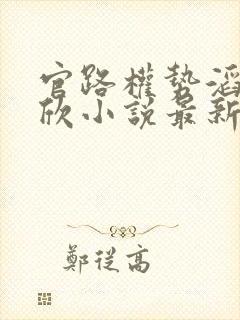 官路權勢滔
欣小說最新
鄭從高